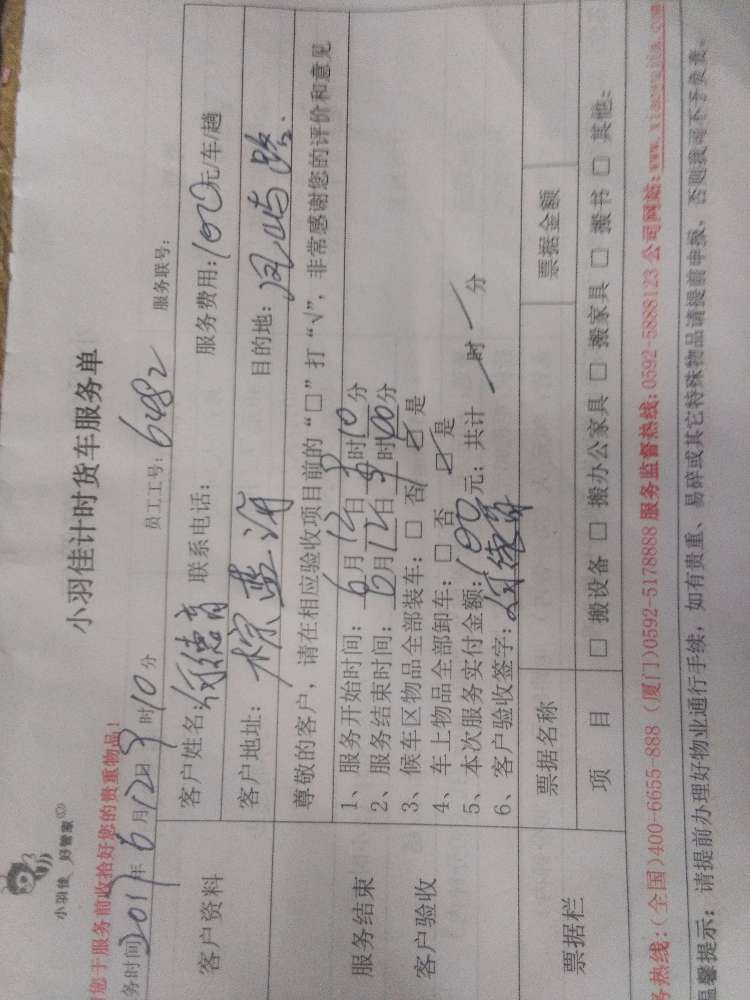 小羽佳 好管家
小羽佳计时货车服务单
您于服务前收拾好您的贵重物品！
务时间2017年6月12日9时10分 员工工号：6482 服务联号：
客户资料
客户姓名： 联系电话： 服务费用：100元/车/趟
客户地址： 目的地：
尊敬的客户，请在相应验收项目前的“□”打“√”，非常感谢您的评价和意见
服务结束
客户验收
1、服务开始时间：6月12日9时10分
2、服务结束时间：6月12日9时00分
3、候车区物品全部装车：□ 否 ☑ 是
4、车上物品全部卸车：□ 否 ☑ 是
5、本次服务实付金额：100元；共计 时 分
6、客户验收签字：
票据栏
票据名称 票据金额
项 目 □ 搬设备 □ 搬办公家具 □ 搬家具 □ 搬书 □ 其他：
务热线：（全国）400-6655-888 （厦门）0592-5178888 服务监督热线：0592-5888123 公司网站：www.xiaoyujia.com
温馨提示：请提前办理好物业通行手续，如有贵重、易碎或其它特殊物品请提前申报，否则我司不予负责。